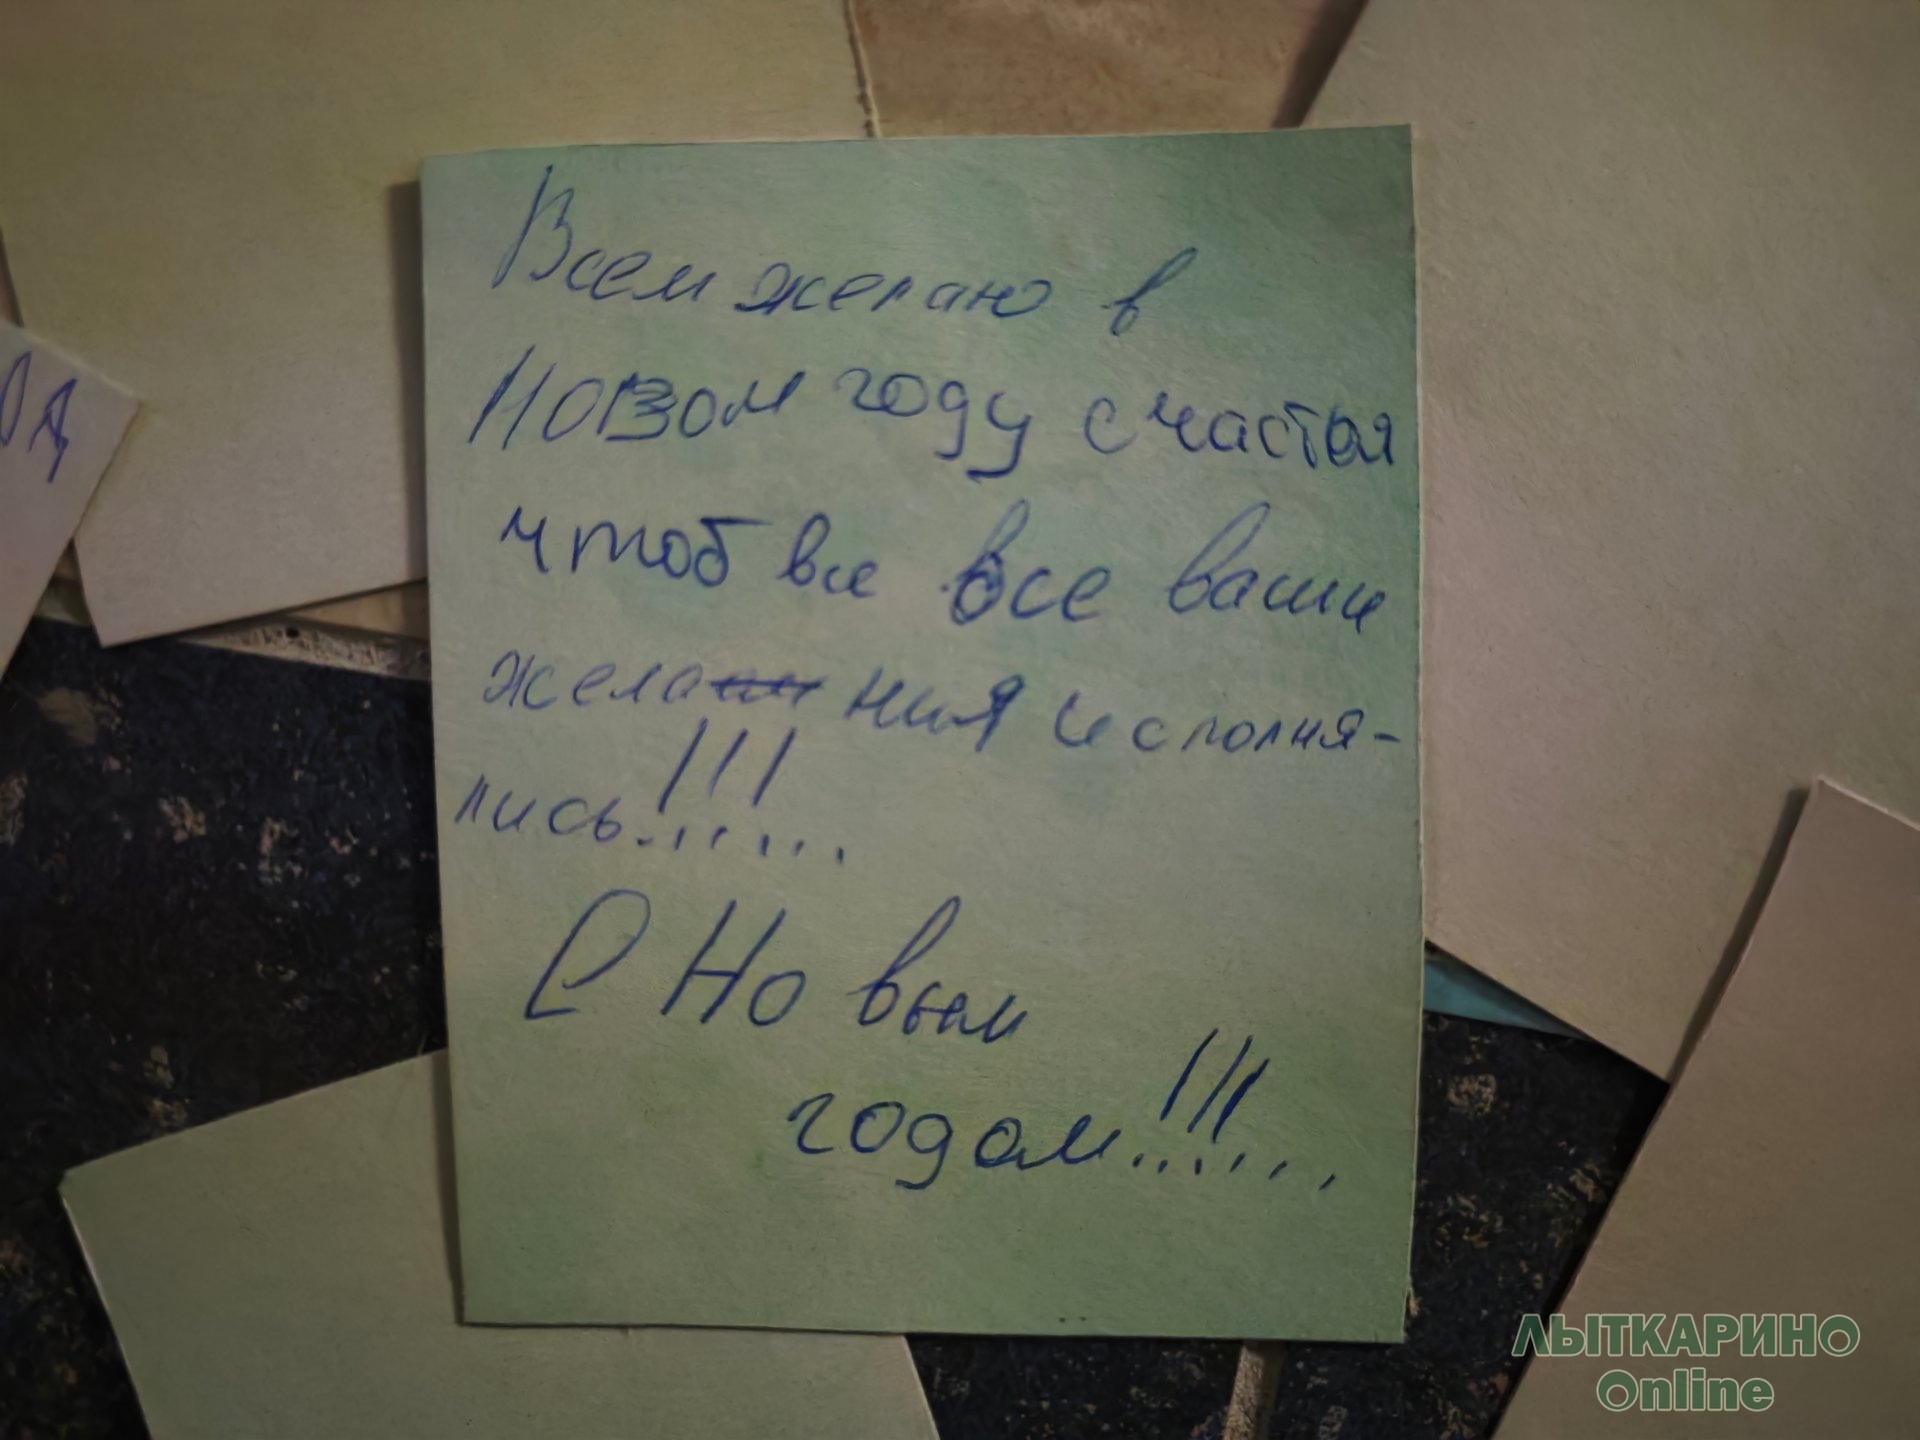 Всем желаю в
Новом году счастья
чтоб все все ваши
желания исполня-
лись!!!...
С Новым
годом!!!...
ЛЫТКАРИНО
Online